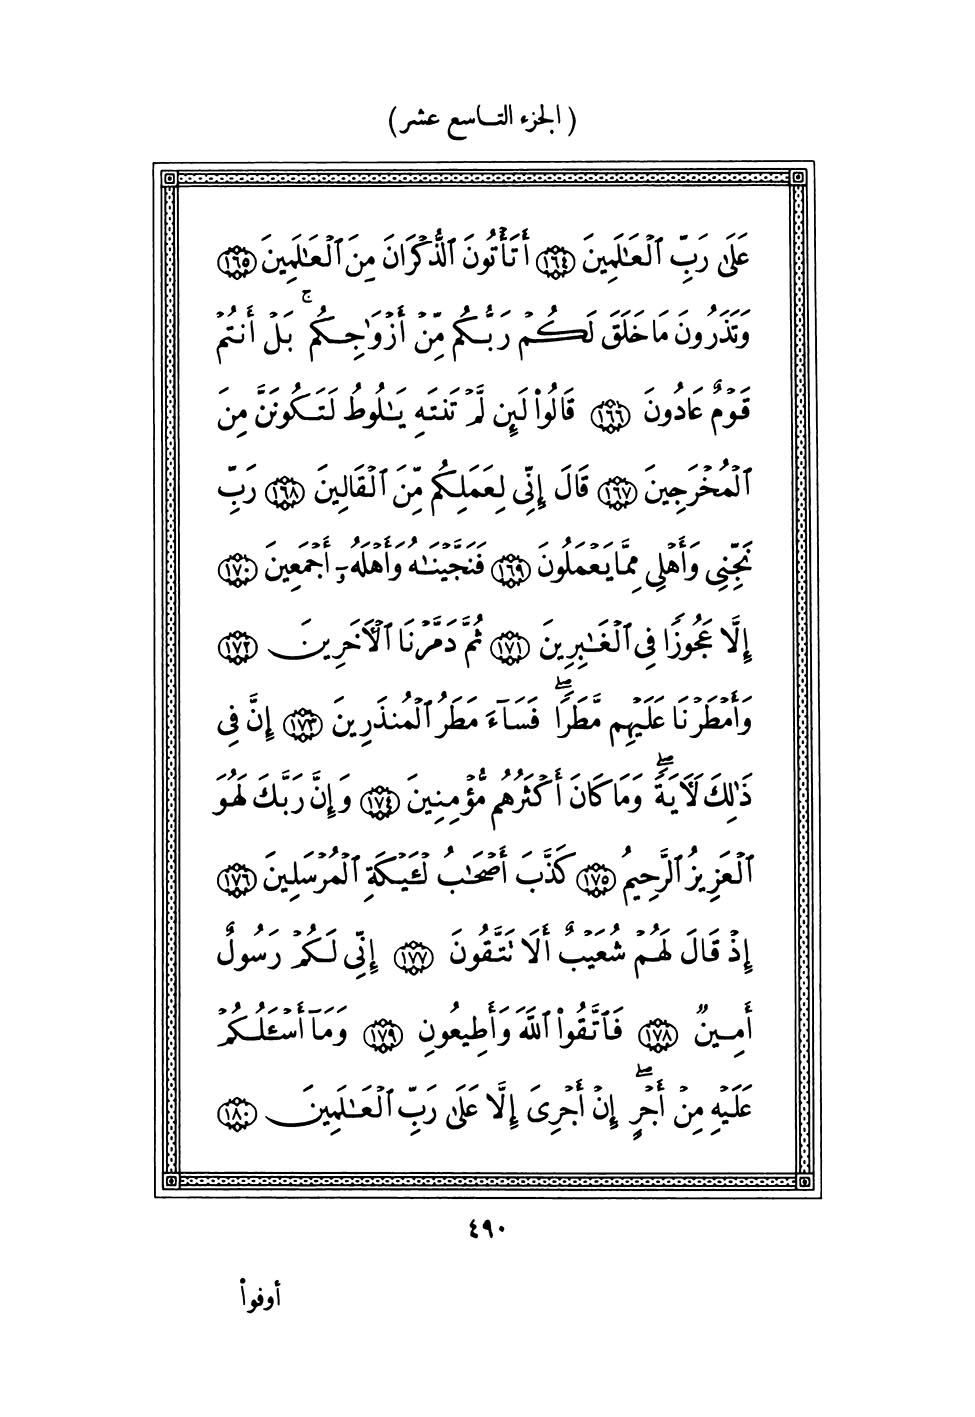 ( الجزء التاسع عشر )
عَلَىٰ رَبِّ ٱلْعَـٰلَمِينَ ١٦٤ أَتَأْتُونَ ٱلذُّكْرَانَ مِنَ ٱلْعَـٰلَمِينَ ١٦٥
وَتَذَرُونَ مَا خَلَقَ لَكُمْ رَبُّكُم مِّنْ أَزْوَٰجِكُم ۚ بَلْ أَنتُمْ
قَوْمٌ عَادُونَ ١٦٦ قَالُوا۟ لَئِن لَّمْ تَنتَهِ يَـٰلُوطُ لَتَكُونَنَّ مِنَ
ٱلْمُخْرَجِينَ ١٦٧ قَالَ إِنِّى لِعَمَلِكُم مِّنَ ٱلْقَالِينَ ١٦٨ رَبِّ
نَجِّنِى وَأَهْلِى مِمَّا يَعْمَلُونَ ١٦٩ فَنَجَّيْنَـٰهُ وَأَهْلَهُۥٓ أَجْمَعِينَ ١٧٠
إِلَّا عَجُوزًا فِى ٱلْغَـٰبِرِينَ ١٧١ ثُمَّ دَمَّرْنَا ٱلْـَٔاخَرِينَ ١٧٢
وَأَمْطَرْنَا عَلَيْهِم مَّطَرًا ۖ فَسَآءَ مَطَرُ ٱلْمُنذَرِينَ ١٧٣ إِنَّ فِى
ذَٰلِكَ لَـَٔايَةً ۖ وَمَا كَانَ أَكْثَرُهُم مُّؤْمِنِينَ ١٧٤ وَإِنَّ رَبَّكَ لَهُوَ
ٱلْعَزِيزُ ٱلرَّحِيمُ ١٧٥ كَذَّبَ أَصْحَـٰبُ لْـَٔيْكَةِ ٱلْمُرْسَلِينَ ١٧٦
إِذْ قَالَ لَهُمْ شُعَيْبٌ أَلَا تَتَّقُونَ ١٧٧ إِنِّى لَكُمْ رَسُولٌ
أَمِينٌ ١٧٨ فَٱتَّقُوا۟ ٱللَّهَ وَأَطِيعُونِ ١٧٩ وَمَآ أَسْـَٔلُكُمْ
عَلَيْهِ مِنْ أَجْرٍ ۖ إِنْ أَجْرِىَ إِلَّا عَلَىٰ رَبِّ ٱلْعَـٰلَمِينَ ١٨٠
٤٩٠
أوفوا۟